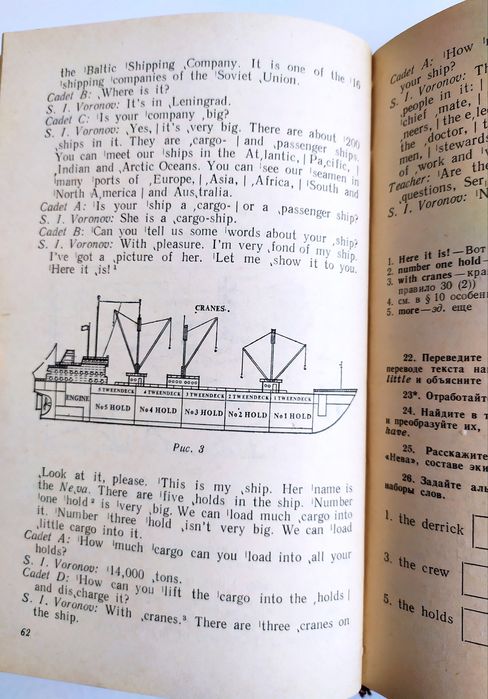 the ˌBaltic ˈShipping ˌCompany. It is one of the ˈ16
ˈshipping ˌcompanies of the ˈSoviet ˌUnion.
Cadet B: ˌWhere is it?
S. I. Voronov: It's in ˌLeningrad.
Cadet C: ˈIs your ˈcompany ˌbig?
S. I. Voronov: ˌYes, | it's ˌvery big. There are about ˈ200
ˌships in it. They are ˌcargo- | and ˌpassenger ˌships.
You can ˈmeet our ˈships in the Atˌlantic, | Paˌcific, |
ˌIndian and ˌArctic Oceans. You can ˈsee our ˈseamen in
ˈmany ˈports of ˌEurope, | ˌAsia, | ˌAfrica, | ˈSouth and
ˈNorth Aˌmerica | and Ausˌtralia.
Cadet A: ˈIs your ˈship a ˌcargo- | or a ˌpassenger ship?
S. I. Voronov: She is a ˌcargo-ship.
Cadet B: ˈCan you ˈtell us some ˈwords about your ˌship?
S. I. Voronov: With ˌpleasure. I'm very ˌfond of my ship.
I've ˈgot a ˌpicture of her. ˈLet me ˌshow it to you.
ˈHere it ˌis! ¹
CRANES.
ENGINE
5 TWEENDECK 4 TWEENDECK 3 TWEENDECK 2 TWEENDECK 1 TWEENDECK
№5 HOLD №4 HOLD №3 HOLD №2 HOLD №1 HOLD
Рис. 3
ˌLook at it, please. ˈThis is my ˌship. Her ˈname is
the Neˌva. There are ˈfive ˌholds in the ship. ˈNumber
ˈone ˈhold ² is ˌvery big. We can ˈload much ˌcargo into
it. ˈNumber ˈthree ˈhold ˌisn't very big. We can ˈload
ˌlittle cargo into it.
Cadet A: ˈHow ˈmuch ˌcargo can you ˈload into ˌall your
holds?
S. I. Voronov: ˈ14,000 ˌtons.
Cadet D: ˈHow can you ˈlift the ˈcargo into the ˌholds |
and disˌcharge it?
S. I. Voronov: With ˌcranes.³ There are ˈthree ˌcranes on
the ship.
62
Cadet A: ˈHow
your ship?
S. I. Voronov:
ˌpeople in it: |
ˈchief ˌmate, |
neers, | the
the ˌdoctor, |
men, | ˈstewards
of ˌwork and
Teacher: ˈAre
ˌquestions,
S. I. Voronov:
1. Here it is! — Вот
2. number one hold —
3. with cranes —
правило 30 (2))
4. см. в § 10
5. more — зд. еще
22. Переведите
переводе текста
little и объясните
23*.
24. Найдите в
и преобразуйте их,
have.
25. Расскажите
«Нева», составе
26. Задайте
наборы слов.
1. the derrick
3. the crew
5. the holds